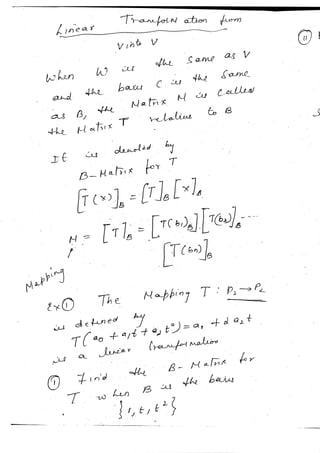 Linear Transformation from
V into V
11
When W is the same as V
and the basis C is the same
as B, the Matrix M is called
the Matrix T relative to B
It is denoted by
B-Matrix for T
[T(x)]B = [T]B [x]B
M = [T]B = [T(b1)]B [T(b2)]B ---
[T(bn)]B
Mapping
Ex① The Mapping T : P2 → P2
is defined by
T(a0 + a1t + a2t²) = a1 + 2a2t
is a linear transformation
① Find the B-Matrix for
T when B is the basis
{1, t, t²}